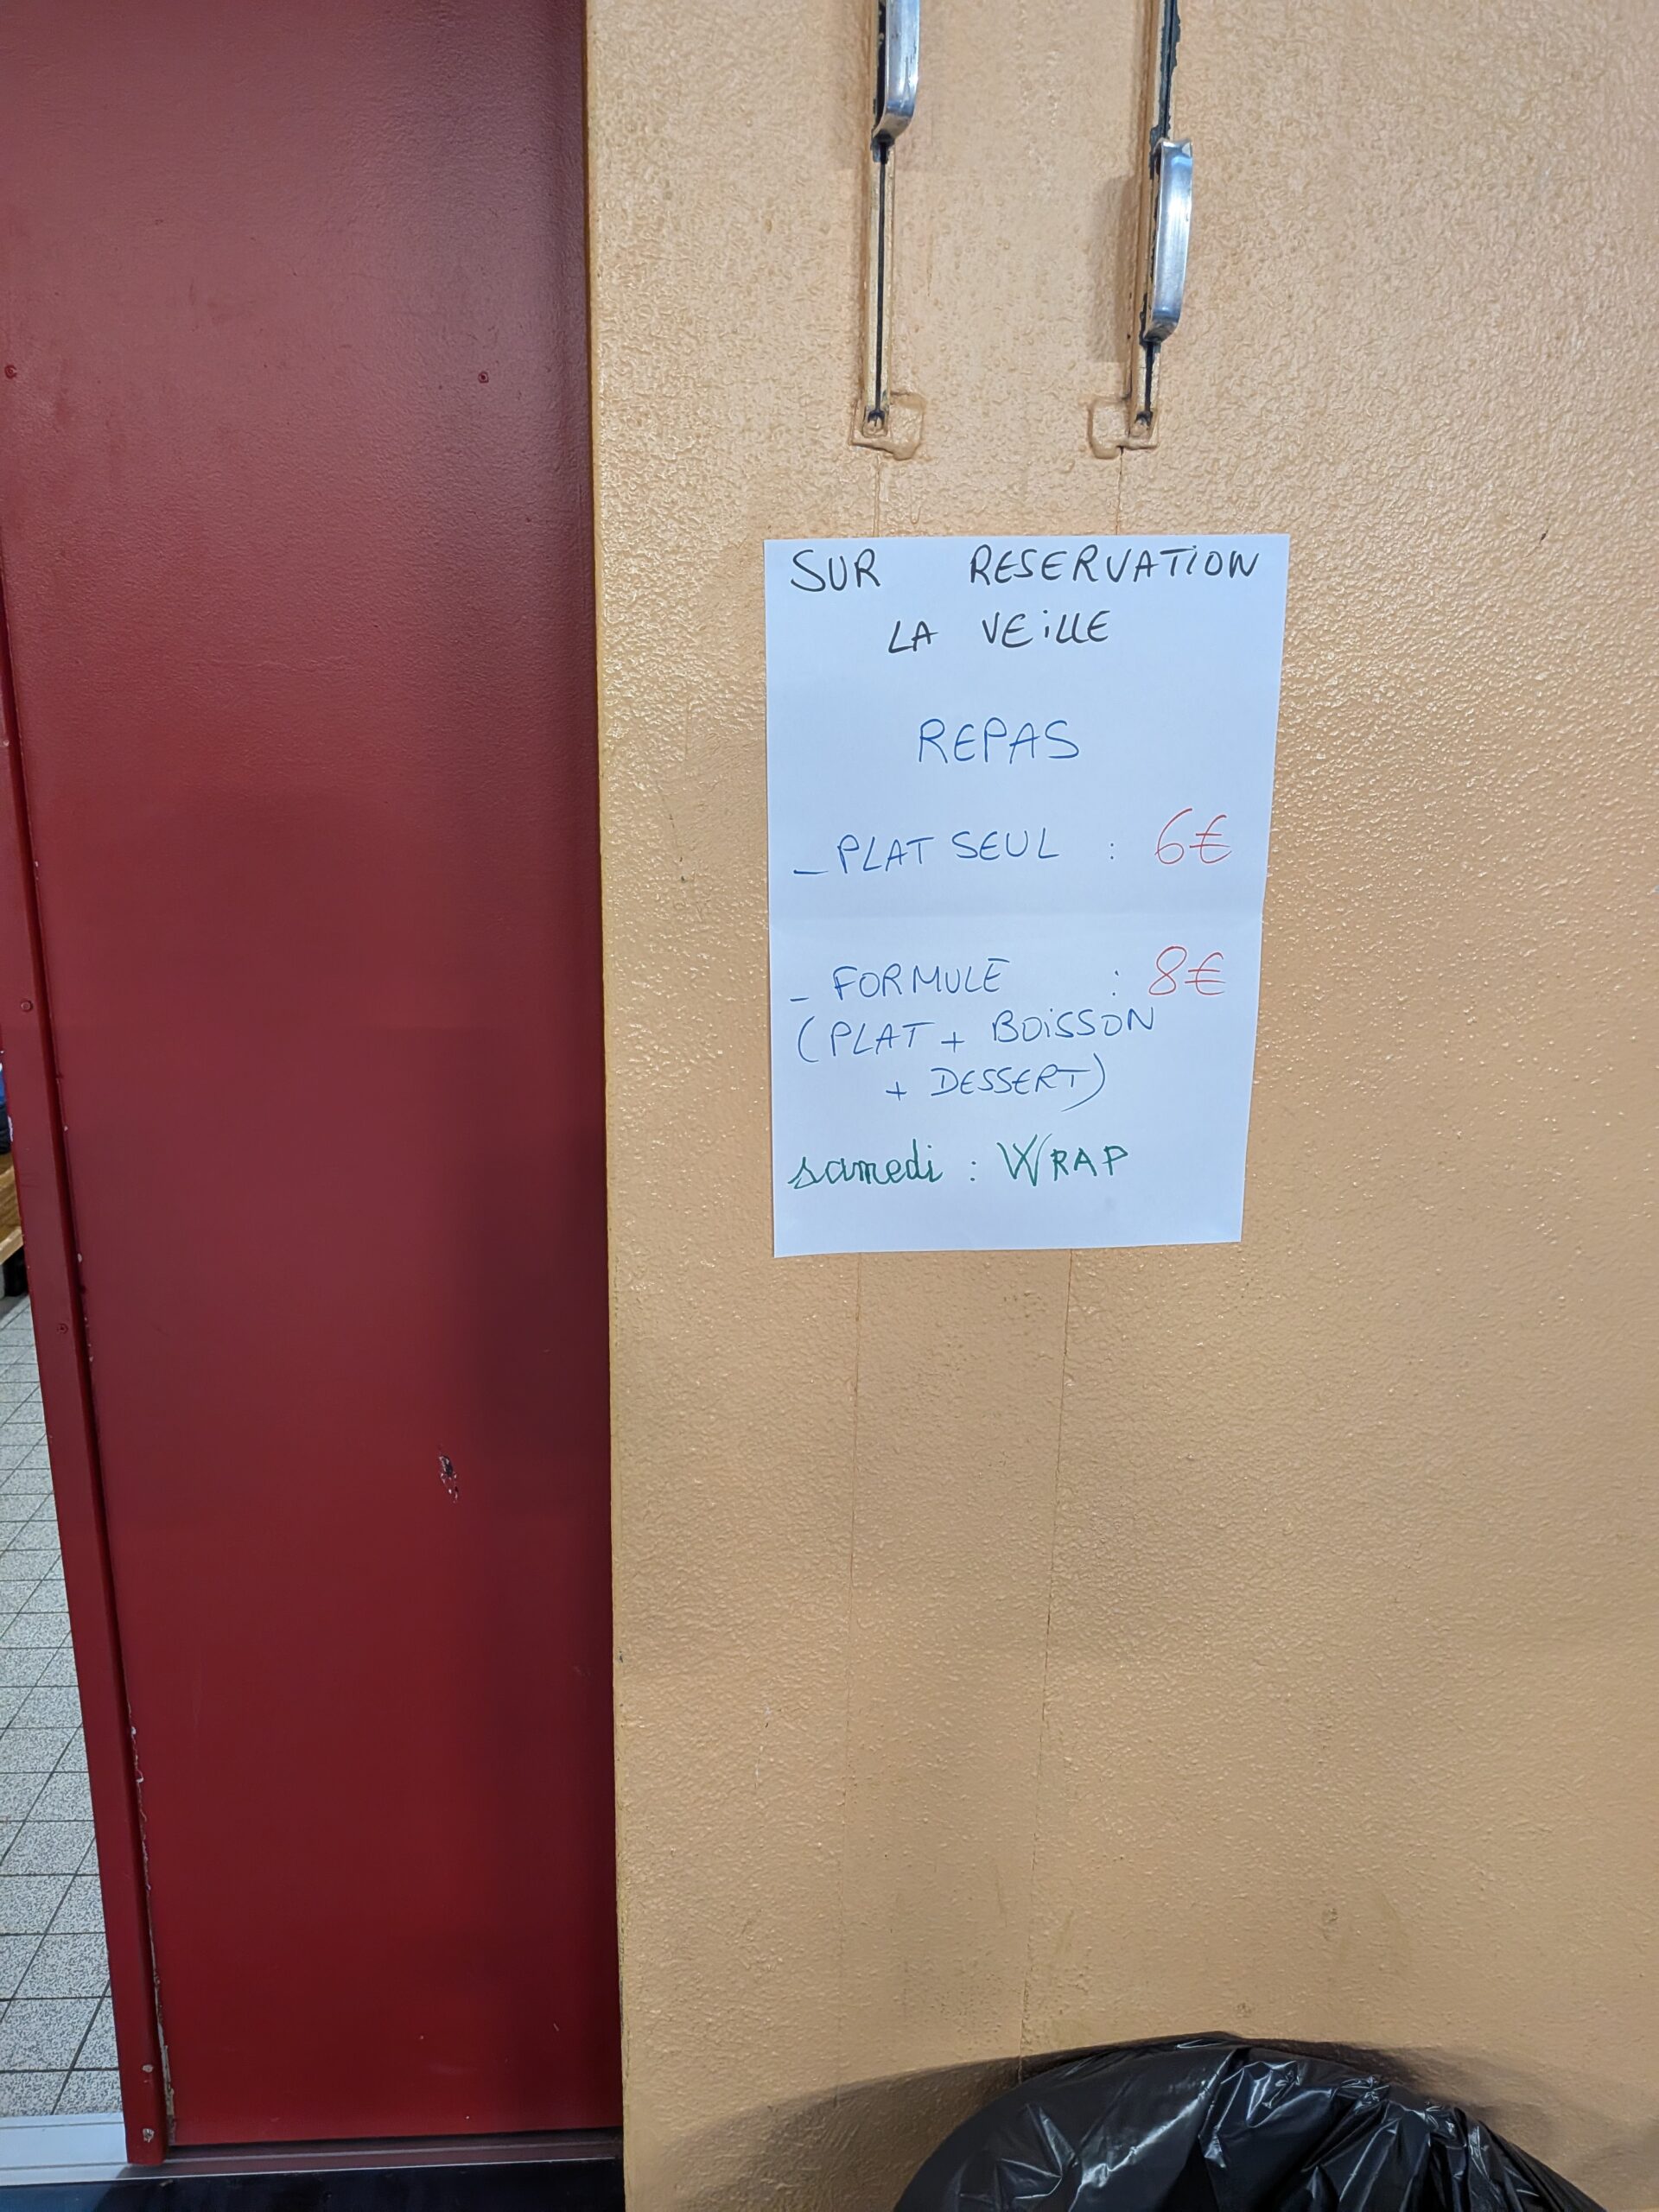 SUR RESERVATION
LA VEiLLE
REPAS
_ PLAT SEUL : 6€
_ FORMULE : 8€
(PLAT + BOiSSON
+ DESSERT)
samedi : WRAP